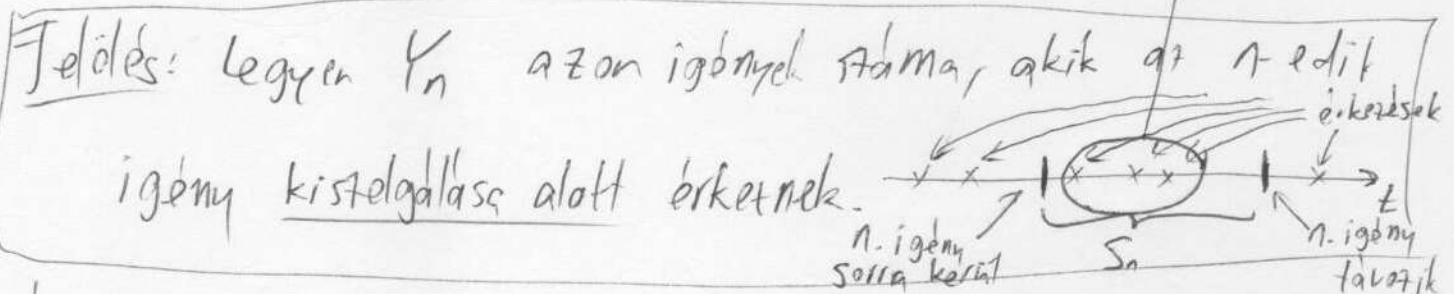 Jelölés: legyen Yn azon igények száma, akik az n-edik
érkezések
igény kiszolgálása alatt érkeznek.
t
n. igény
sorra kerül
Sn
n. igény
távozik